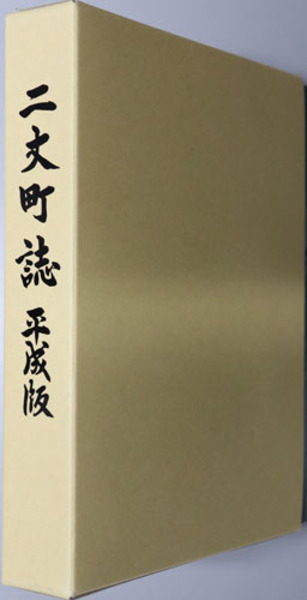 二丈町誌 平成版